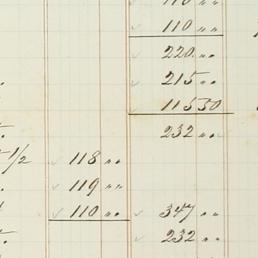 110 ""
220 ""
215 ""
115 50
232 ""
1/2 118 ""
119 ""
110 "" 347 ""
232 ""